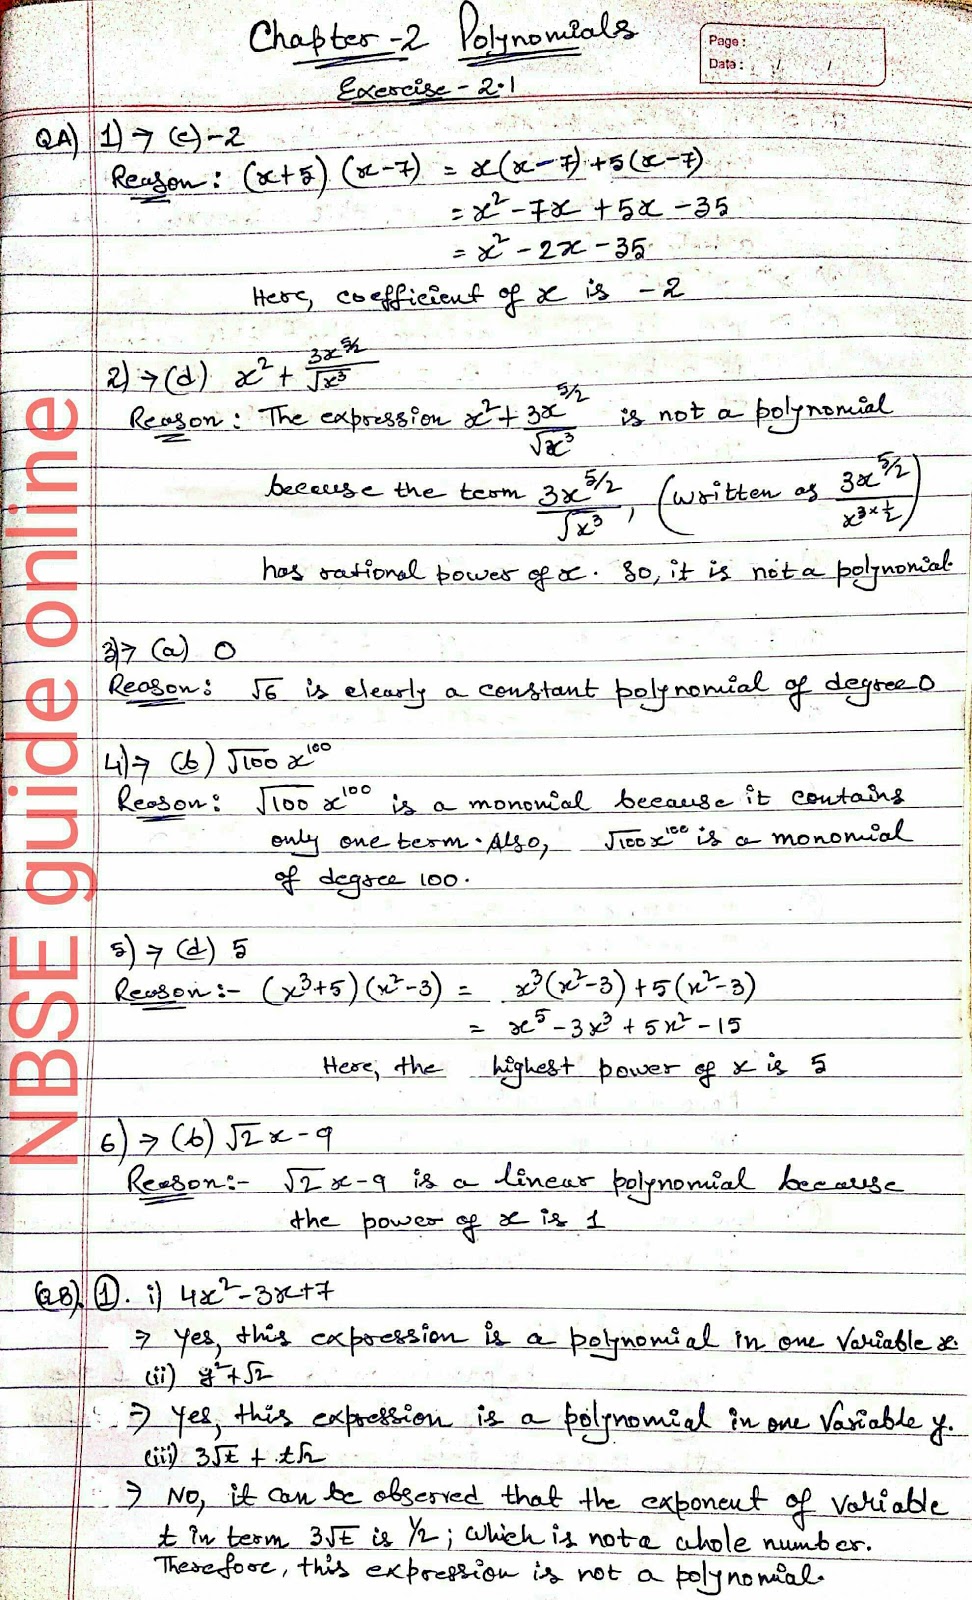 Chapter-2 Polynomials
Page:
Date: / /
Exercise-2.1
QA) 1) → (c) -2
Reason: (x+5) (x-7) = x(x-7)+5(x-7)
= x² -7x +5x -35
= x² - 2x - 35
Here, coefficient of x is -2
2) → (d) x² + 3x^5/2 / √x³
Reason: The expression x² + 3x^5/2 / √x³ is not a polynomial
because the term 3x^5/2 / √x³, (written as 3x^5/2 / x^3×1/2)
has rational power of x. So, it is not a polynomial.
3) → (a) 0
Reason: √6 is clearly a constant polynomial of degree 0
4) → (b) √100 x¹⁰⁰
Reason: √100 x¹⁰⁰ is a monomial because it contains
only one term. Also, √100x¹⁰⁰ is a monomial
of degree 100.
5) → (d) 5
Reason:- (x³+5)(x²-3) = x³(x²-3)+5(x²-3)
= x⁵ -3x³ + 5x² -15
Here, the highest power of x is 5
6) → (b) √2x-9
Reason:- √2x-9 is a linear polynomial because
the power of x is 1
QB). 1. i) 4x²-3x+7
⇒ Yes, this expression is a polynomial in one variable x.
(ii) y²+√2
⇒ Yes, this expression is a polynomial in one Variable y.
(iii) 3√t + t√2
⇒ No, it can be observed that the exponent of variable
t in term 3√t is 1/2; which is not a whole number.
Therefore, this expression is not a polynomial.
NBSE guide online